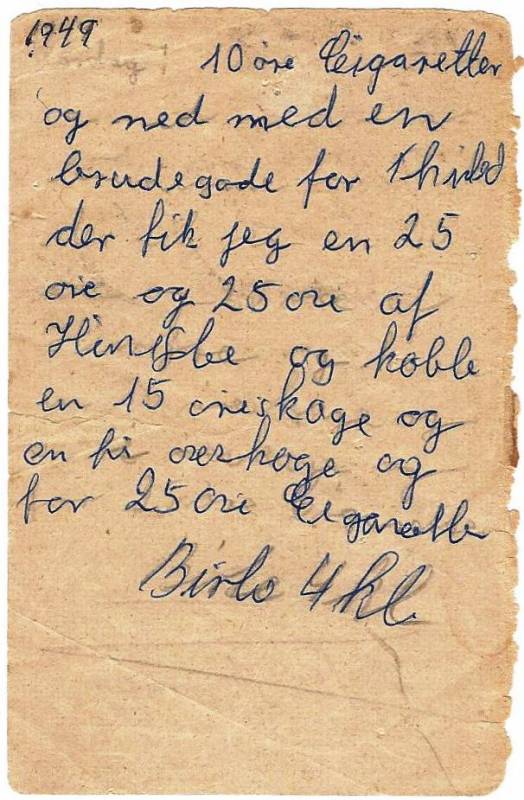 1949
10 øre Cigaretter
og ned med en
brudegade for
der fik jeg en 25
øre og 25 øre af
og køble
en 15 øreskage og
en fi øerskoge og
for 25 øre Cigaretter
Birlo 4 kl